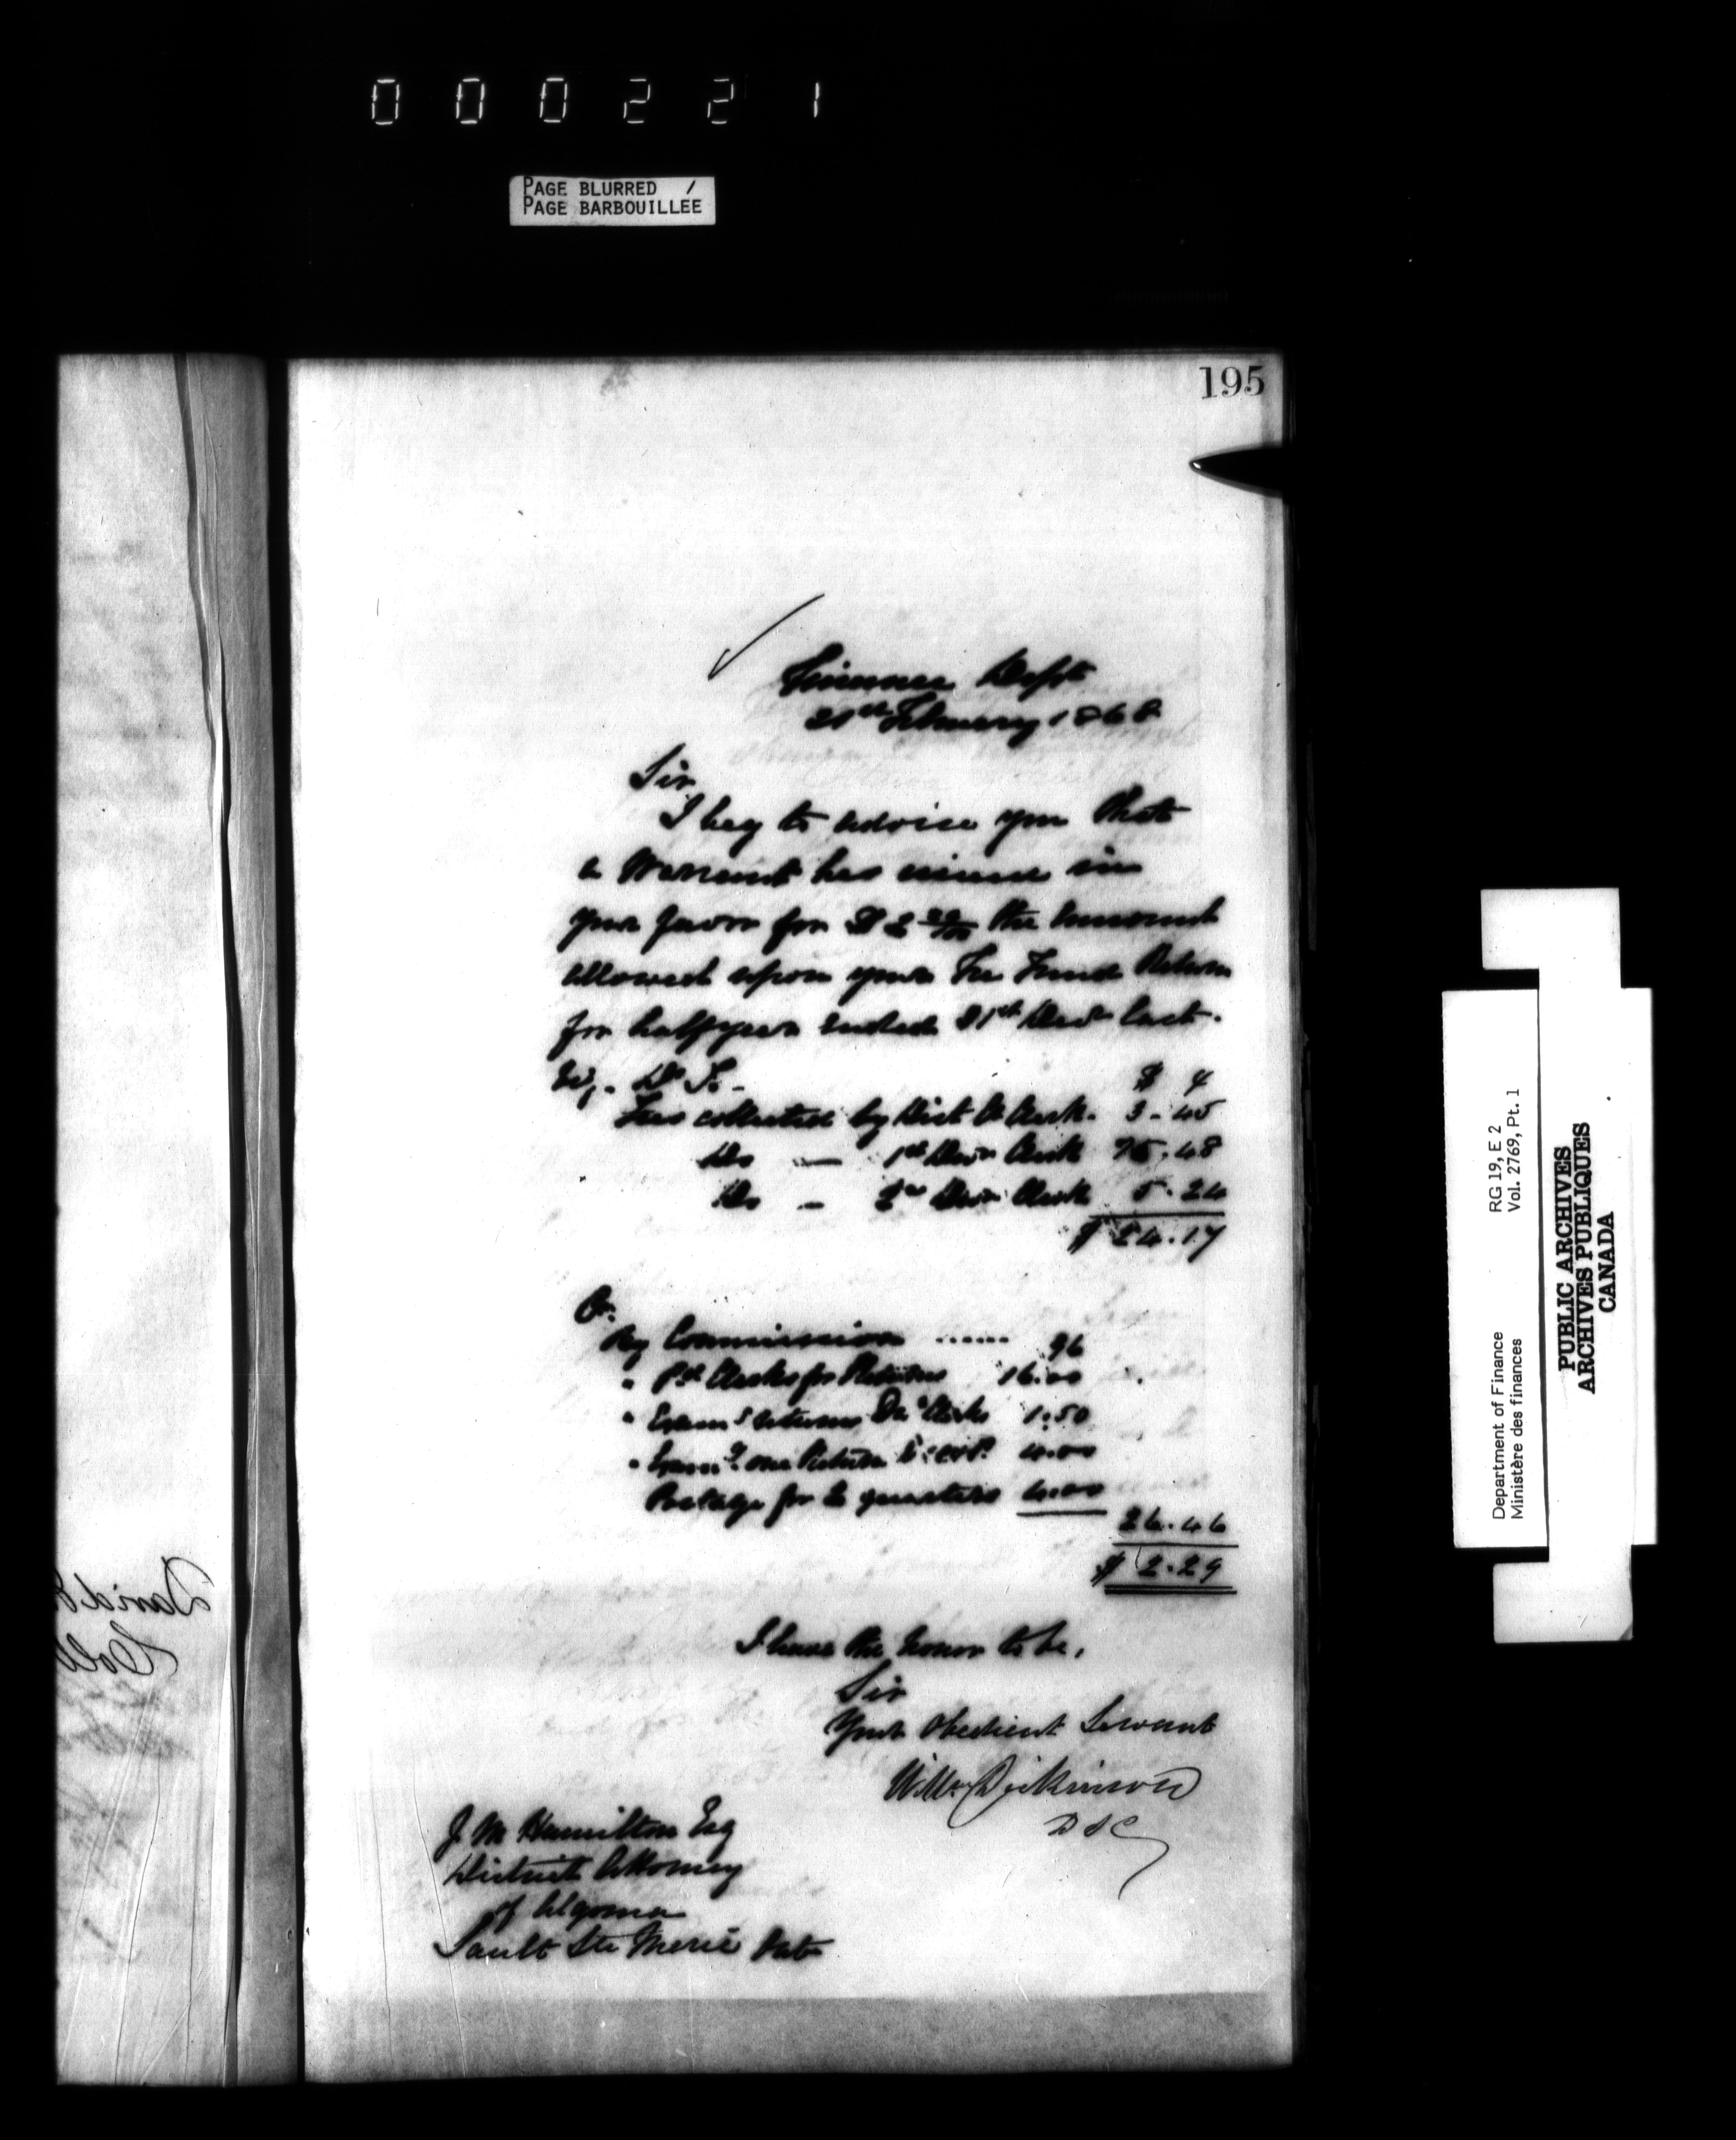 000221
PAGE BLURRED /
PAGE BARBOUILLÉE
195
Finance Dept
21st February 1868
Sir,
I beg to advise you that
a Warrant has issued in
your favor for $ 2 29/100 the amount
allowed upon your Fee Fund Return
for half year ended 31st Decr last.
Fees collected by Dist C. Clerk. 3.45
Do — 1st Divn Clerk 15.48
Do — 2nd Divn Clerk 5.24
$ 24.17
Cr.
By Commission ...... 96
" Pd Clerks for Returns 16.00
" Examg returns Dn Clerks 1.50
" one Return 4.00
Postage for 2 quarters 4.00
26.46
$ 2.29
I have the honor to be,
Sir
Your Obedient Servant
Wm Dickinson
J M Hamilton Esq
District Attorney
of Algoma
Sault Ste Marie Ont
David
Department of Finance RG 19, E 2
Ministère des finances Vol. 2769, Pt. 1
PUBLIC ARCHIVES
ARCHIVES PUBLIQUES
CANADA